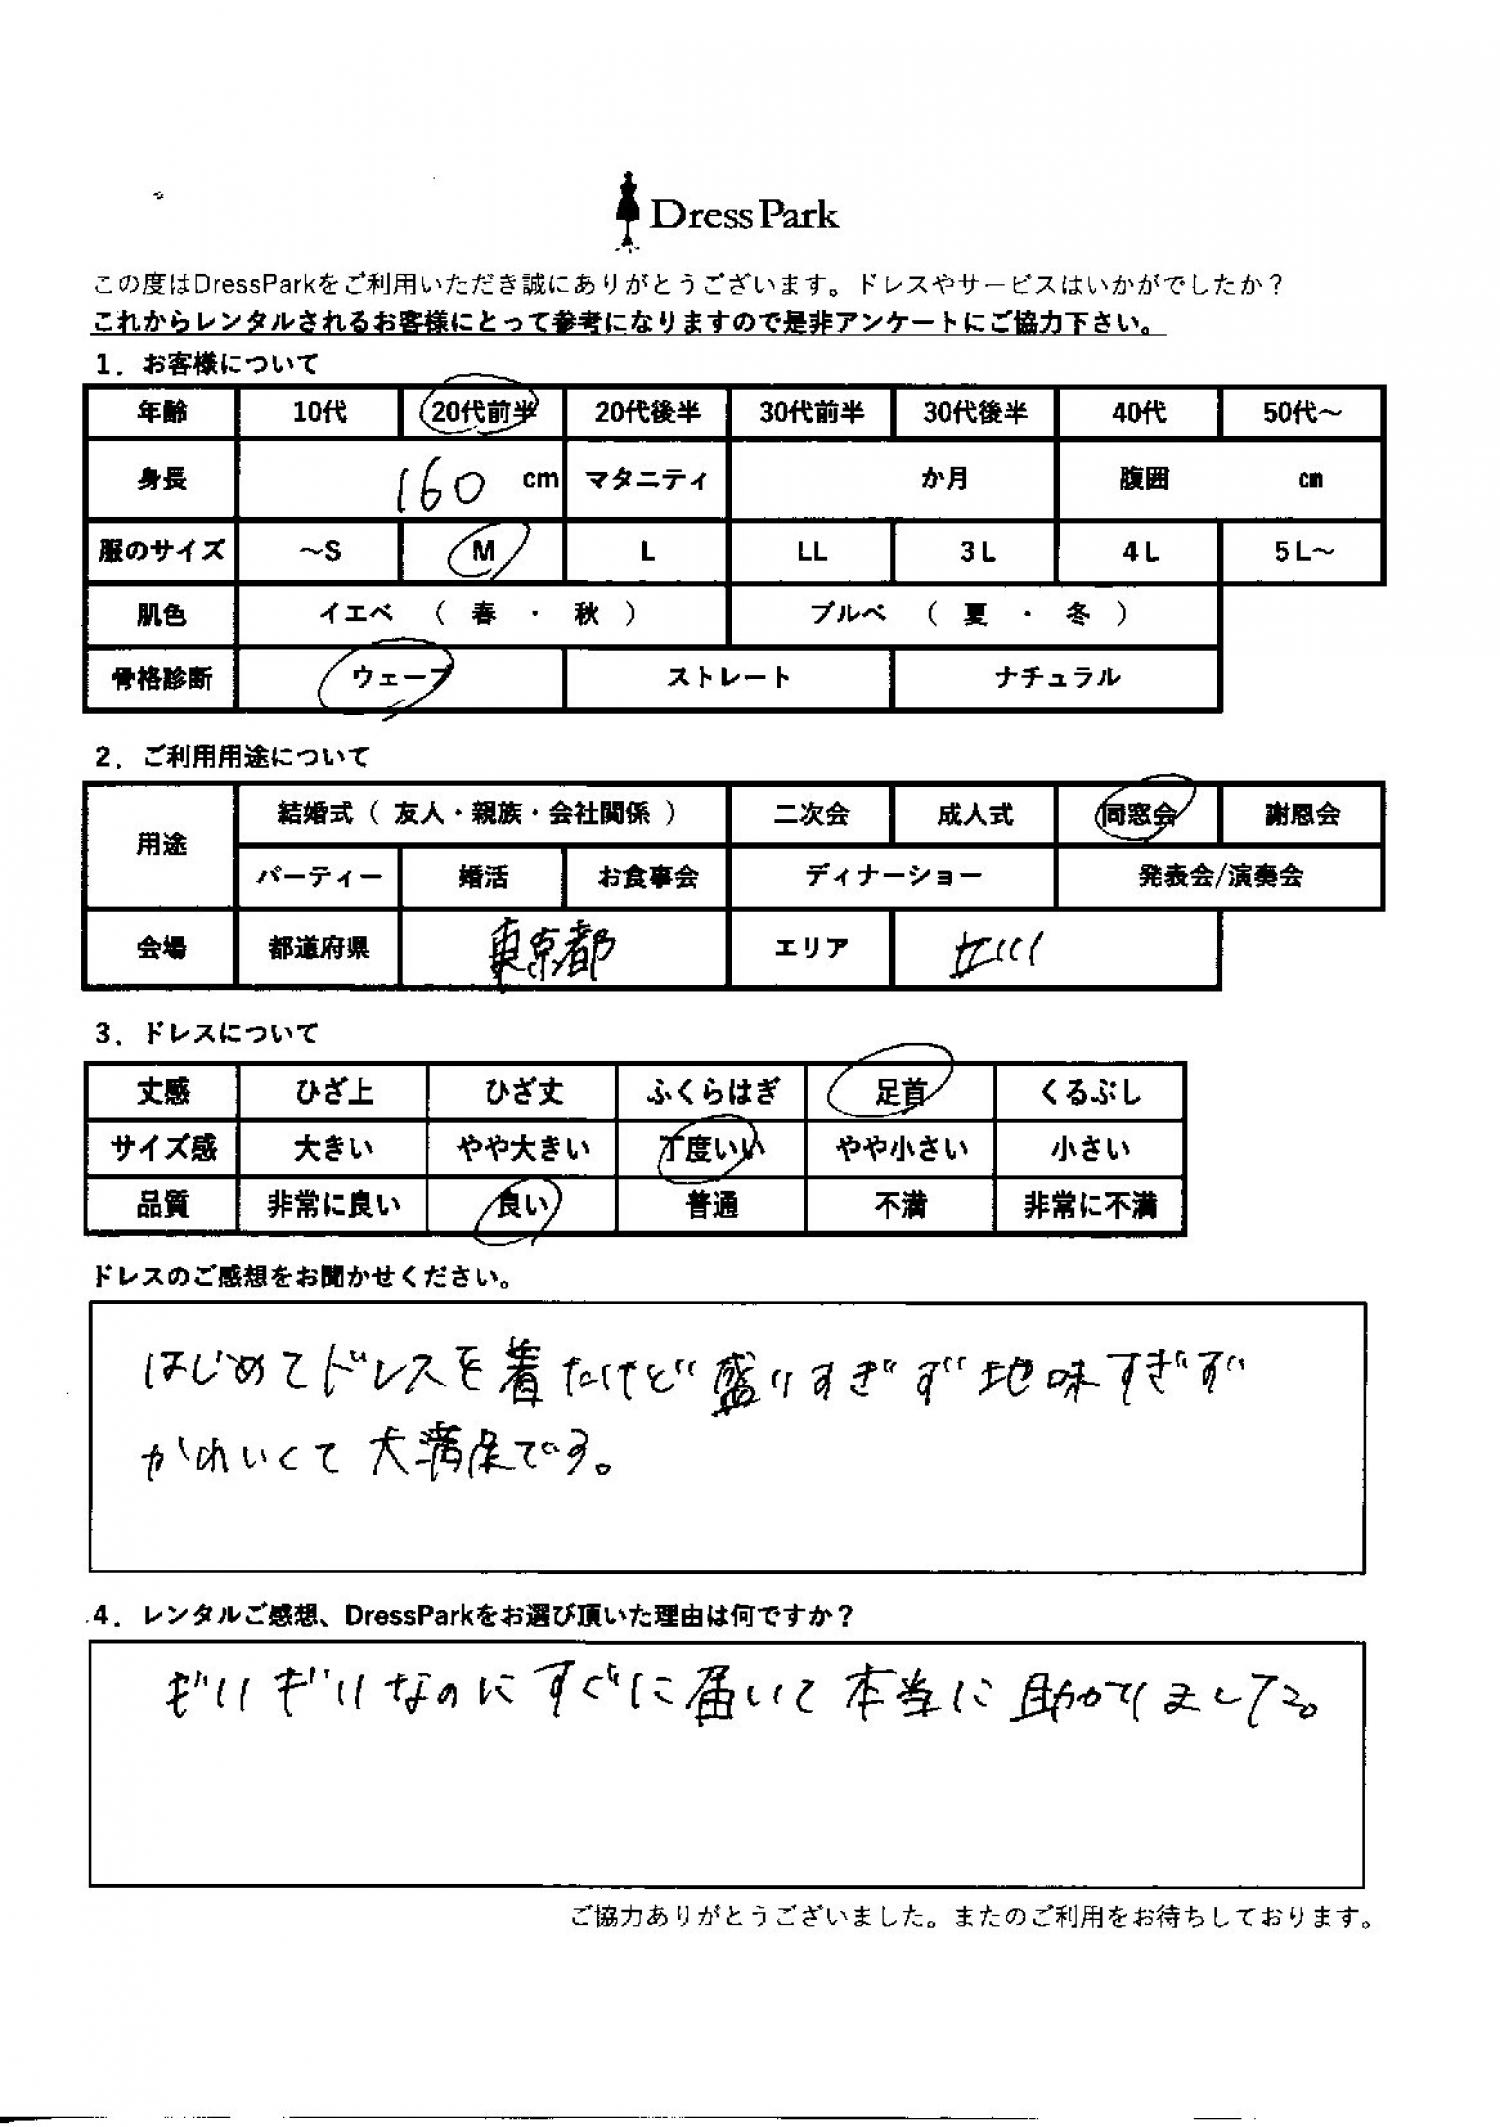 DressPark
この度はDressParkをご利用いただき誠にありがとうございます。ドレスやサービスはいかがでしたか？
これからレンタルされるお客様にとって参考になりますので是非アンケートにご協力下さい。
1．お客様について
年齢 10代 20代前半 20代後半 30代前半 30代後半 40代 50代～
身長 160 cm マタニティ か月 腹囲 cm
服のサイズ ～S M L LL 3L 4L 5L～
肌色 イエベ （ 春 ・ 秋 ） ブルベ （ 夏 ・ 冬 ）
骨格診断 ウェーブ ストレート ナチュラル
2．ご利用用途について
用途 結婚式（ 友人・親族・会社関係 ） 二次会 成人式 同窓会 謝恩会
パーティー 婚活 お食事会 ディナーショー 発表会/演奏会
会場 都道府県 東京都 エリア
3．ドレスについて
丈感 ひざ上 ひざ丈 ふくらはぎ 足首 くるぶし
サイズ感 大きい やや大きい 丁度いい やや小さい 小さい
品質 非常に良い 良い 普通 不満 非常に不満
ドレスのご感想をお聞かせください。
はじめてドレスを着たけど盛りすぎず地味すぎず
かわいくて大満足です。
4．レンタルご感想、DressParkをお選び頂いた理由は何ですか？
ギリギリなのにすぐに届いて本当に助かりました。
ご協力ありがとうございました。またのご利用をお待ちしております。